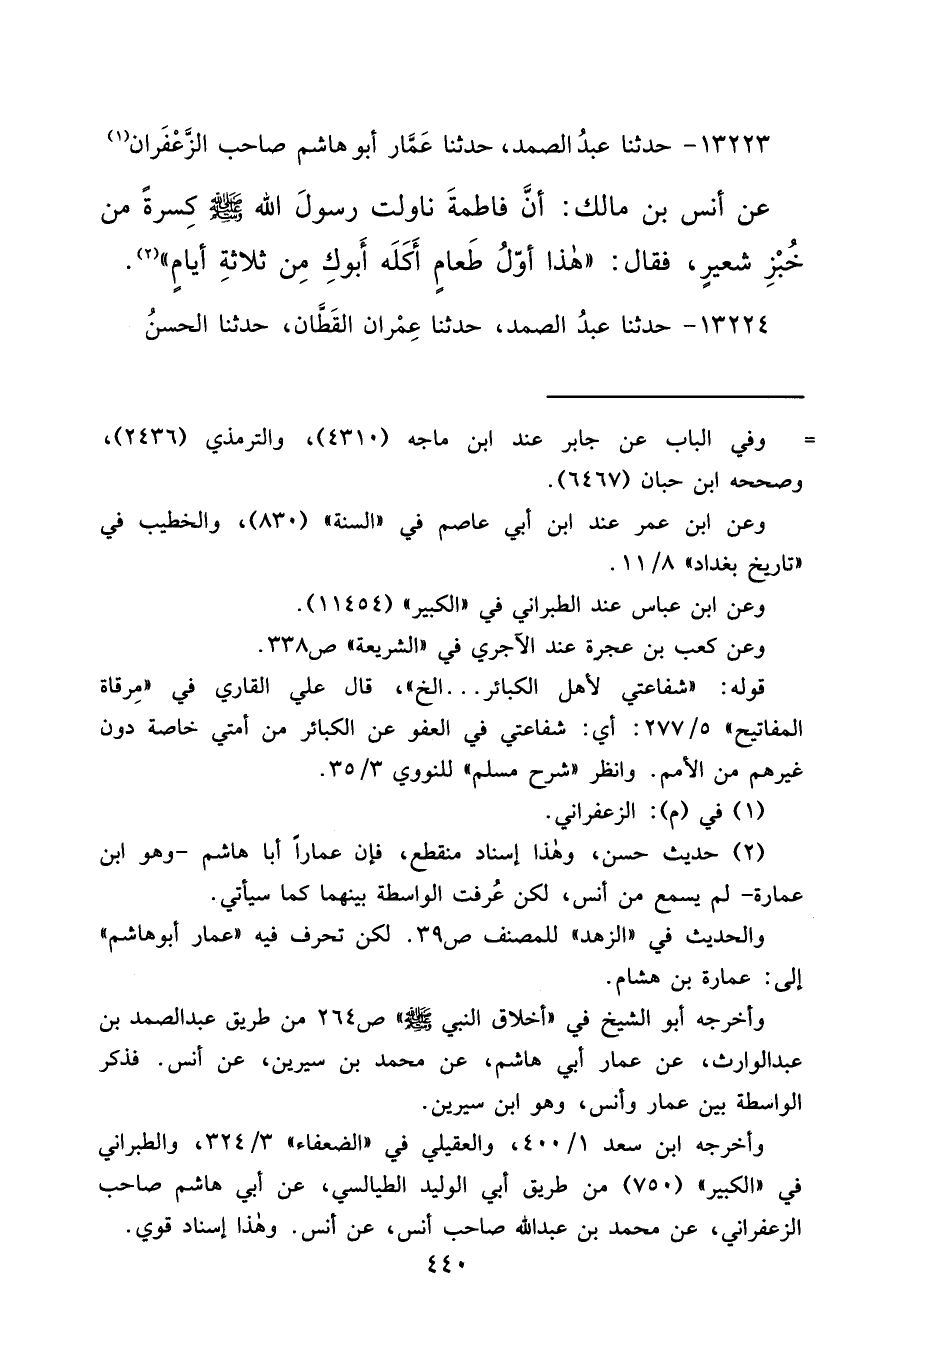 ١٣٢٢٣- حدثنا عبدُ الصمد، حدثنا عَمَّار أبو هاشم صاحب الزَّعْفَران(١)
عن أنس بن مالك: أنَّ فاطمةَ ناولت رسولَ الله ﷺ كِسرةً من
خُبْزِ شعيرٍ، فقال: «هٰذا أوّلُ طَعامٍ أَكَلَه أَبوكِ مِن ثلاثةِ أيامٍ»(٢).
١٣٢٢٤- حدثنا عبدُ الصمد، حدثنا عِمْران القَطَّان، حدثنا الحسنُ
= وفي الباب عن جابر عند ابن ماجه (٤٣١٠)، والترمذي (٢٤٣٦)،
وصححه ابن حبان (٦٤٦٧).
وعن ابن عمر عند ابن أبي عاصم في «السنة» (٨٣٠)، والخطيب في
«تاريخ بغداد» ١١/٨.
وعن ابن عباس عند الطبراني في «الكبير» (١١٤٥٤).
وعن كعب بن عجرة عند الآجري في «الشريعة» ص٣٣٨.
قوله: «شفاعتي لأهل الكبائر...الخ»، قال علي القاري في «مِرقاة
المفاتيح» ٢٧٧/٥: أي: شفاعتي في العفو عن الكبائر من أمتي خاصة دون
غيرهم من الأمم. وانظر «شرح مسلم» للنووي ٣٥/٣.
(١) في (م): الزعفراني.
(٢) حديث حسن، وهٰذا إسناد منقطع، فإن عماراً أبا هاشم -وهو ابن
عمارة- لم يسمع من أنس، لكن عُرفت الواسطة بينهما كما سيأتي.
والحديث في «الزهد» للمصنف ص٣٩. لكن تحرف فيه «عمار أبوهاشم»
إلى: عمارة بن هشام.
وأخرجه أبو الشيخ في «أخلاق النبي ﷺ» ص٢٦٤ من طريق عبدالصمد بن
عبدالوارث، عن عمار أبي هاشم، عن محمد بن سيرين، عن أنس. فذكر
الواسطة بين عمار وأنس، وهو ابن سيرين.
وأخرجه ابن سعد ٤٠٠/١، والعقيلي في «الضعفاء» ٣٢٤/٣، والطبراني
في «الكبير» (٧٥٠) من طريق أبي الوليد الطيالسي، عن أبي هاشم صاحب
الزعفراني، عن محمد بن عبدالله صاحب أنس، عن أنس. وهٰذا إسناد قوي.
٤٤٠